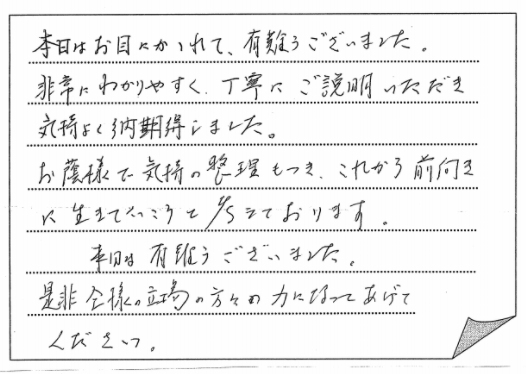 本日はお目にかかれて、有難うございました。
非常にわかりやすく、丁寧にご説明いただき
気持よく納得しました。
お蔭様で気持の整理もつき、これから前向き
に生きていこうと おります。
本日は有難うございました。
是非 様の立場の方々の力になってあげて
ください。